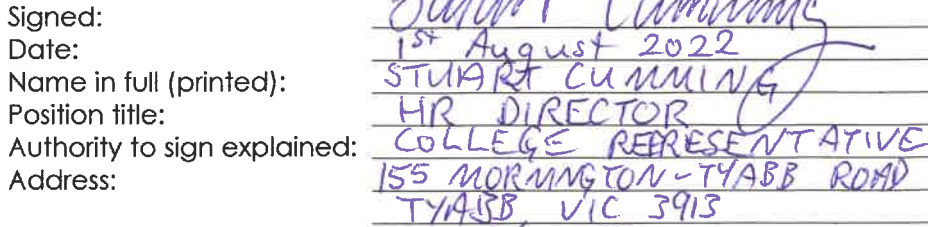 Signed: Stuart Cumming
Date: 1st August 2022
Name in full (printed): STUART CUMMING
Position title: HR DIRECTOR
Authority to sign explained: COLLEGE REPRESENTATIVE
Address: 155 MORNINGTON-TYABB ROAD
TYABB, VIC 3913